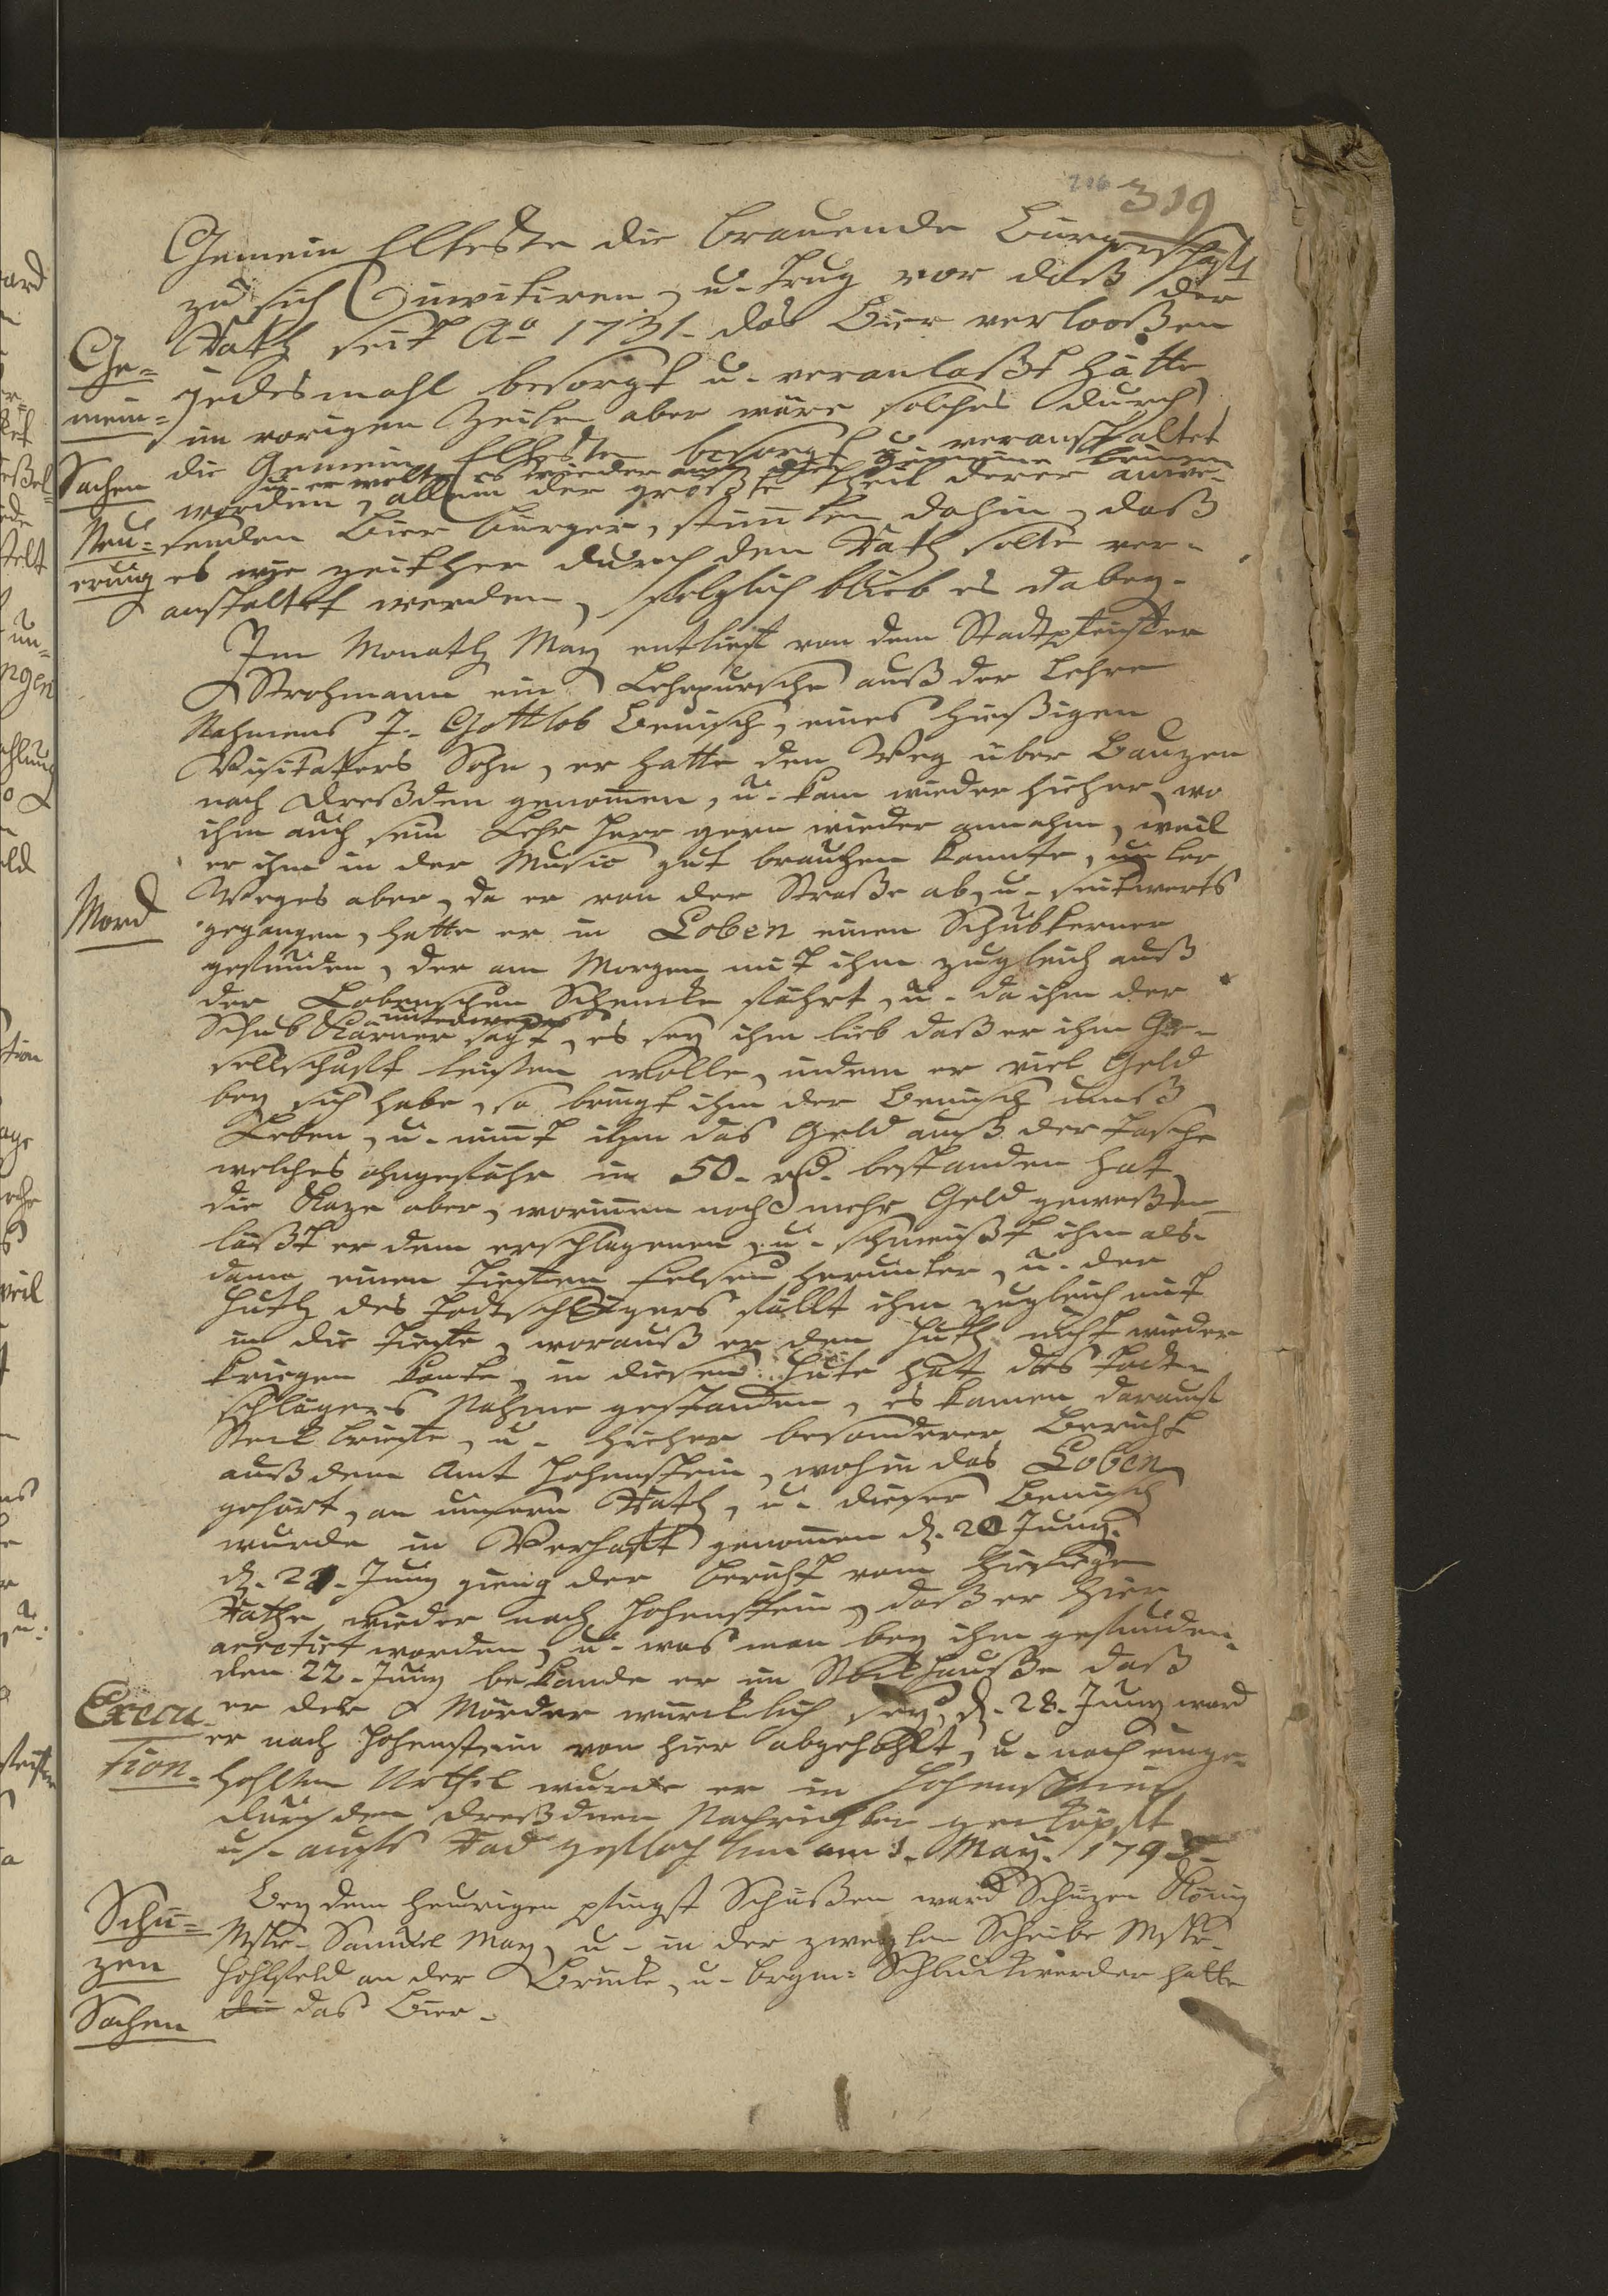 206 319
Gemein Elteste die brauende Bürgerschafft
zu sich invitiren, u. trug vor daß der
Rath seit Ao 1731. das Bier verlooßen
jedesmahl besorgt u. veranlaßt hätte
im vorigen Zeiten aber wäre solches durch
die Gemein Elteste besorgt u. veranstaltet
u. er wolte es wieder an die Gemeine bringen
worden, allein der größte theil derer anwe-
senden Bier bürger, stimten dahin, daß
es wie zeither durch den Rath solte ver-
anstaltet werden, folglich blieb es dabey.
Ge-
mein-
Sachen
Neu-
erung
Im Monath May entlieft von dem Stadtpfeiffer
Strohmann ein Lehrpursche auß der Lehre
Nahmens J. Gottlob Benisch, eines hießigen
Visitators Sohn, er hatte den Weg über Bauzen
nach Dreßden genomen, u. kam wieder hieher, wo
ihm auch sein Lehr Herr gern wieder annahm, weil
er ihm in der Music gut brauchen konnte, unter
Weges aber, da er von der Straße ab, u. seitwerts
Mord
gegangen, hatte er in Loben einen Schubkerner
gefunden, der am Morgen mit ihm zugleich auß
der Lobenschen Schencke fährt, u. da ihm der
unterweges
Schub Kärner sagt, es sey ihm lieb daß er ihm Ge-
sellschafft leisten wolle, indem er viel Geld
bey sich habe, so bringt ihm der Benisch umß
Leben, u. nimt ihm das Geld auß der Tasche
welches ohngefähr in 50. rd. bestanden hat
die Kaze aber, worinnen noch mehr Geld geweßen
läßt er dem erschlagenen, u. schmeißt ihm als-
dann einen tieffen Felsen herunter, u. der
Huth des Todtschlägers fällt ihm zugleich mit
in die Tieffe, worauß er den Huth nicht wieder
kriegen konte, in diesem Hute hat des Todten
schlägers Nahme gestanden, es kamen darauf
Steckbriefe, u. hieher besonderer Bericht
auß dem Amt Hohenstein, wohin das Loben
gehört, an unsern Rath, u. dieser Benisch
wurde in Verhafft genomen d. 20 Juny.
d. 21. Juny gieng der bericht vom hiesigen
Rathe wieder nach Hohenstein, daß er hier
arretirt worden, u. was man bey ihm gefunden.
den 22. Juny bekande er im Stockhauße daß
Execu-
tion.
er der Mörder würcklich sey, d. 28. Juny ward
er nach Hohenstein von hier abgehohlt, u. nach einge-
hohlten Urthel wurde er in Hohenstein
durch den Dreßdner Nachrichter geköpft
u. aufs Rad geflochten am 1. May. 179
Schü-
zen
Sachen
Bey dem heurigen pfingst Schüßen ward Schüzen König
Mstr. Samuel May, u. in der zweyten Scheibe Mstr.
Hohlfeld an der Brücke, u. brgm: Schluckwerder hatte
die das Bier.